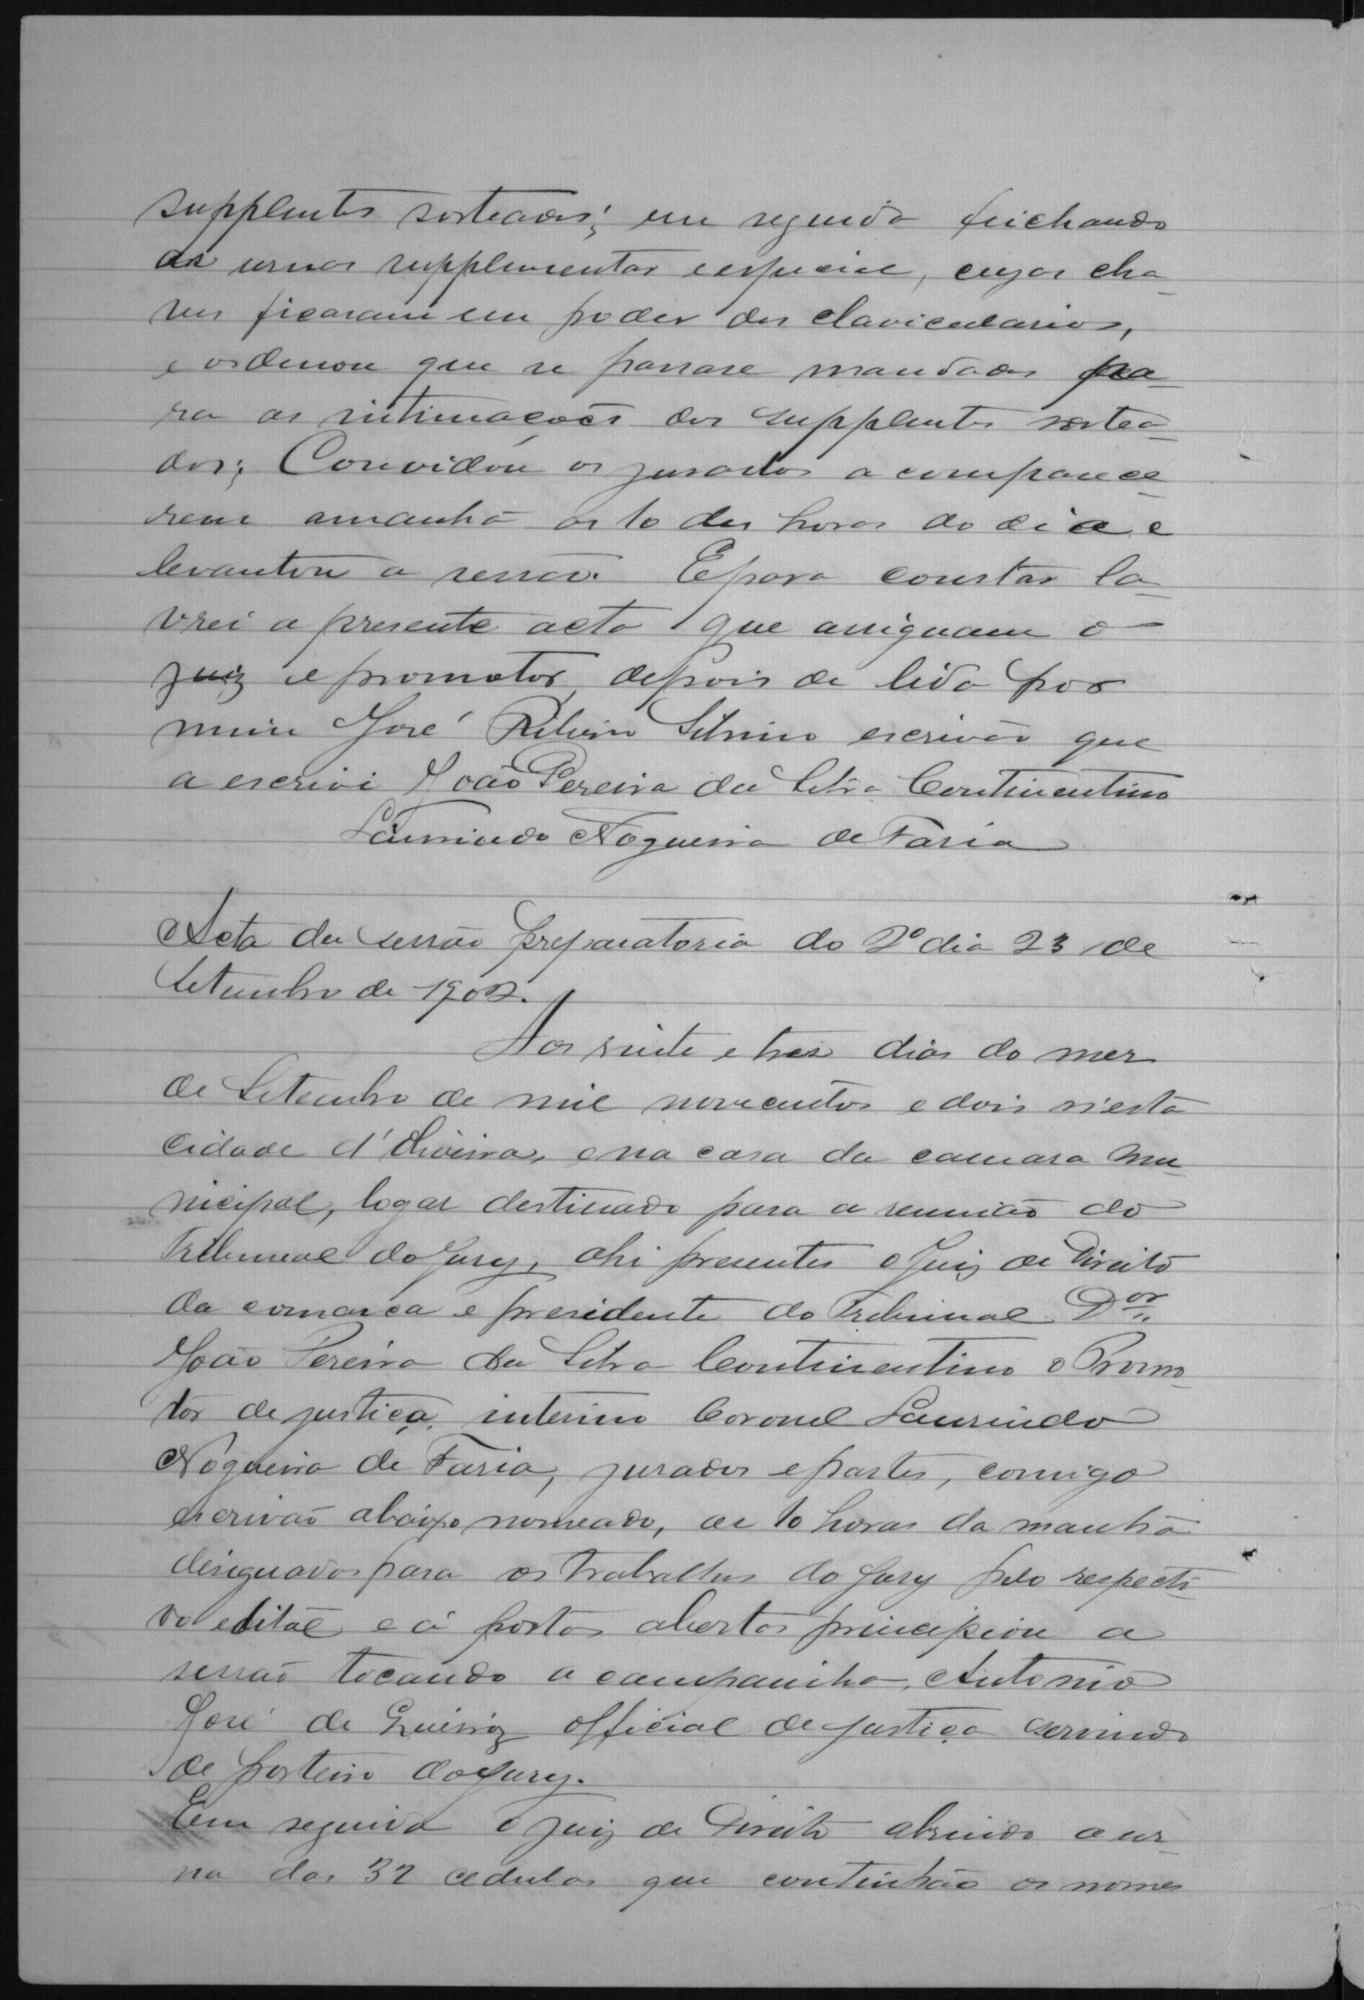 supplentes sorteados; em seguida feichando
as urnas supplementar e especial, cujas cha-
ves ficaram em poder dos clavicularios,
e ordenou que se passase mandados pa-
ra as intimações dos supplentes sortea-
dos; Convidou os jurados a comparece-
rem amanhã as 10 des horas do dia e
levantou a sessão. E para constar la-
vrei a presente acta que assignam o
juiz e promotor, depois de lida por
mim José Ribeiro Silvino escrivão que
a escrivi João Pereira da Silva Continentino
Laurindo Nogueira de Faria
Acta da sessão preparatoria do 2º dia 23 de
Setembro de 1902.
Aos vinte e tres dias do mes
de Setembro de mil novecentos e dois n'esta
cidade d'Oliveira, e na casa da camara mu-
nicipal, logar destinado para a reunião do
Tribunal do Jury, ahi presentes o Juiz de Direito
da comarca e presidente do Tribunal Dor.
João Pereira da Silva Continentino o Promo-
tor de justiça, interino Coronel Laurindo
Nogueira de Faria, jurados e partes, comigo
escrivão abaixo nomeado, as 10 horas da manhã
designados para os trabalhos do Jury pelo respecti-
vo edital e á portas abertas principiou a
sessão tocando a campainha, Antonio
José de Queiroz official de justiça servindo
de porteiro do Jury.
Em seguida o Juiz de Direito abrindo a ur-
na das 32 cedulas que continhão os nomes